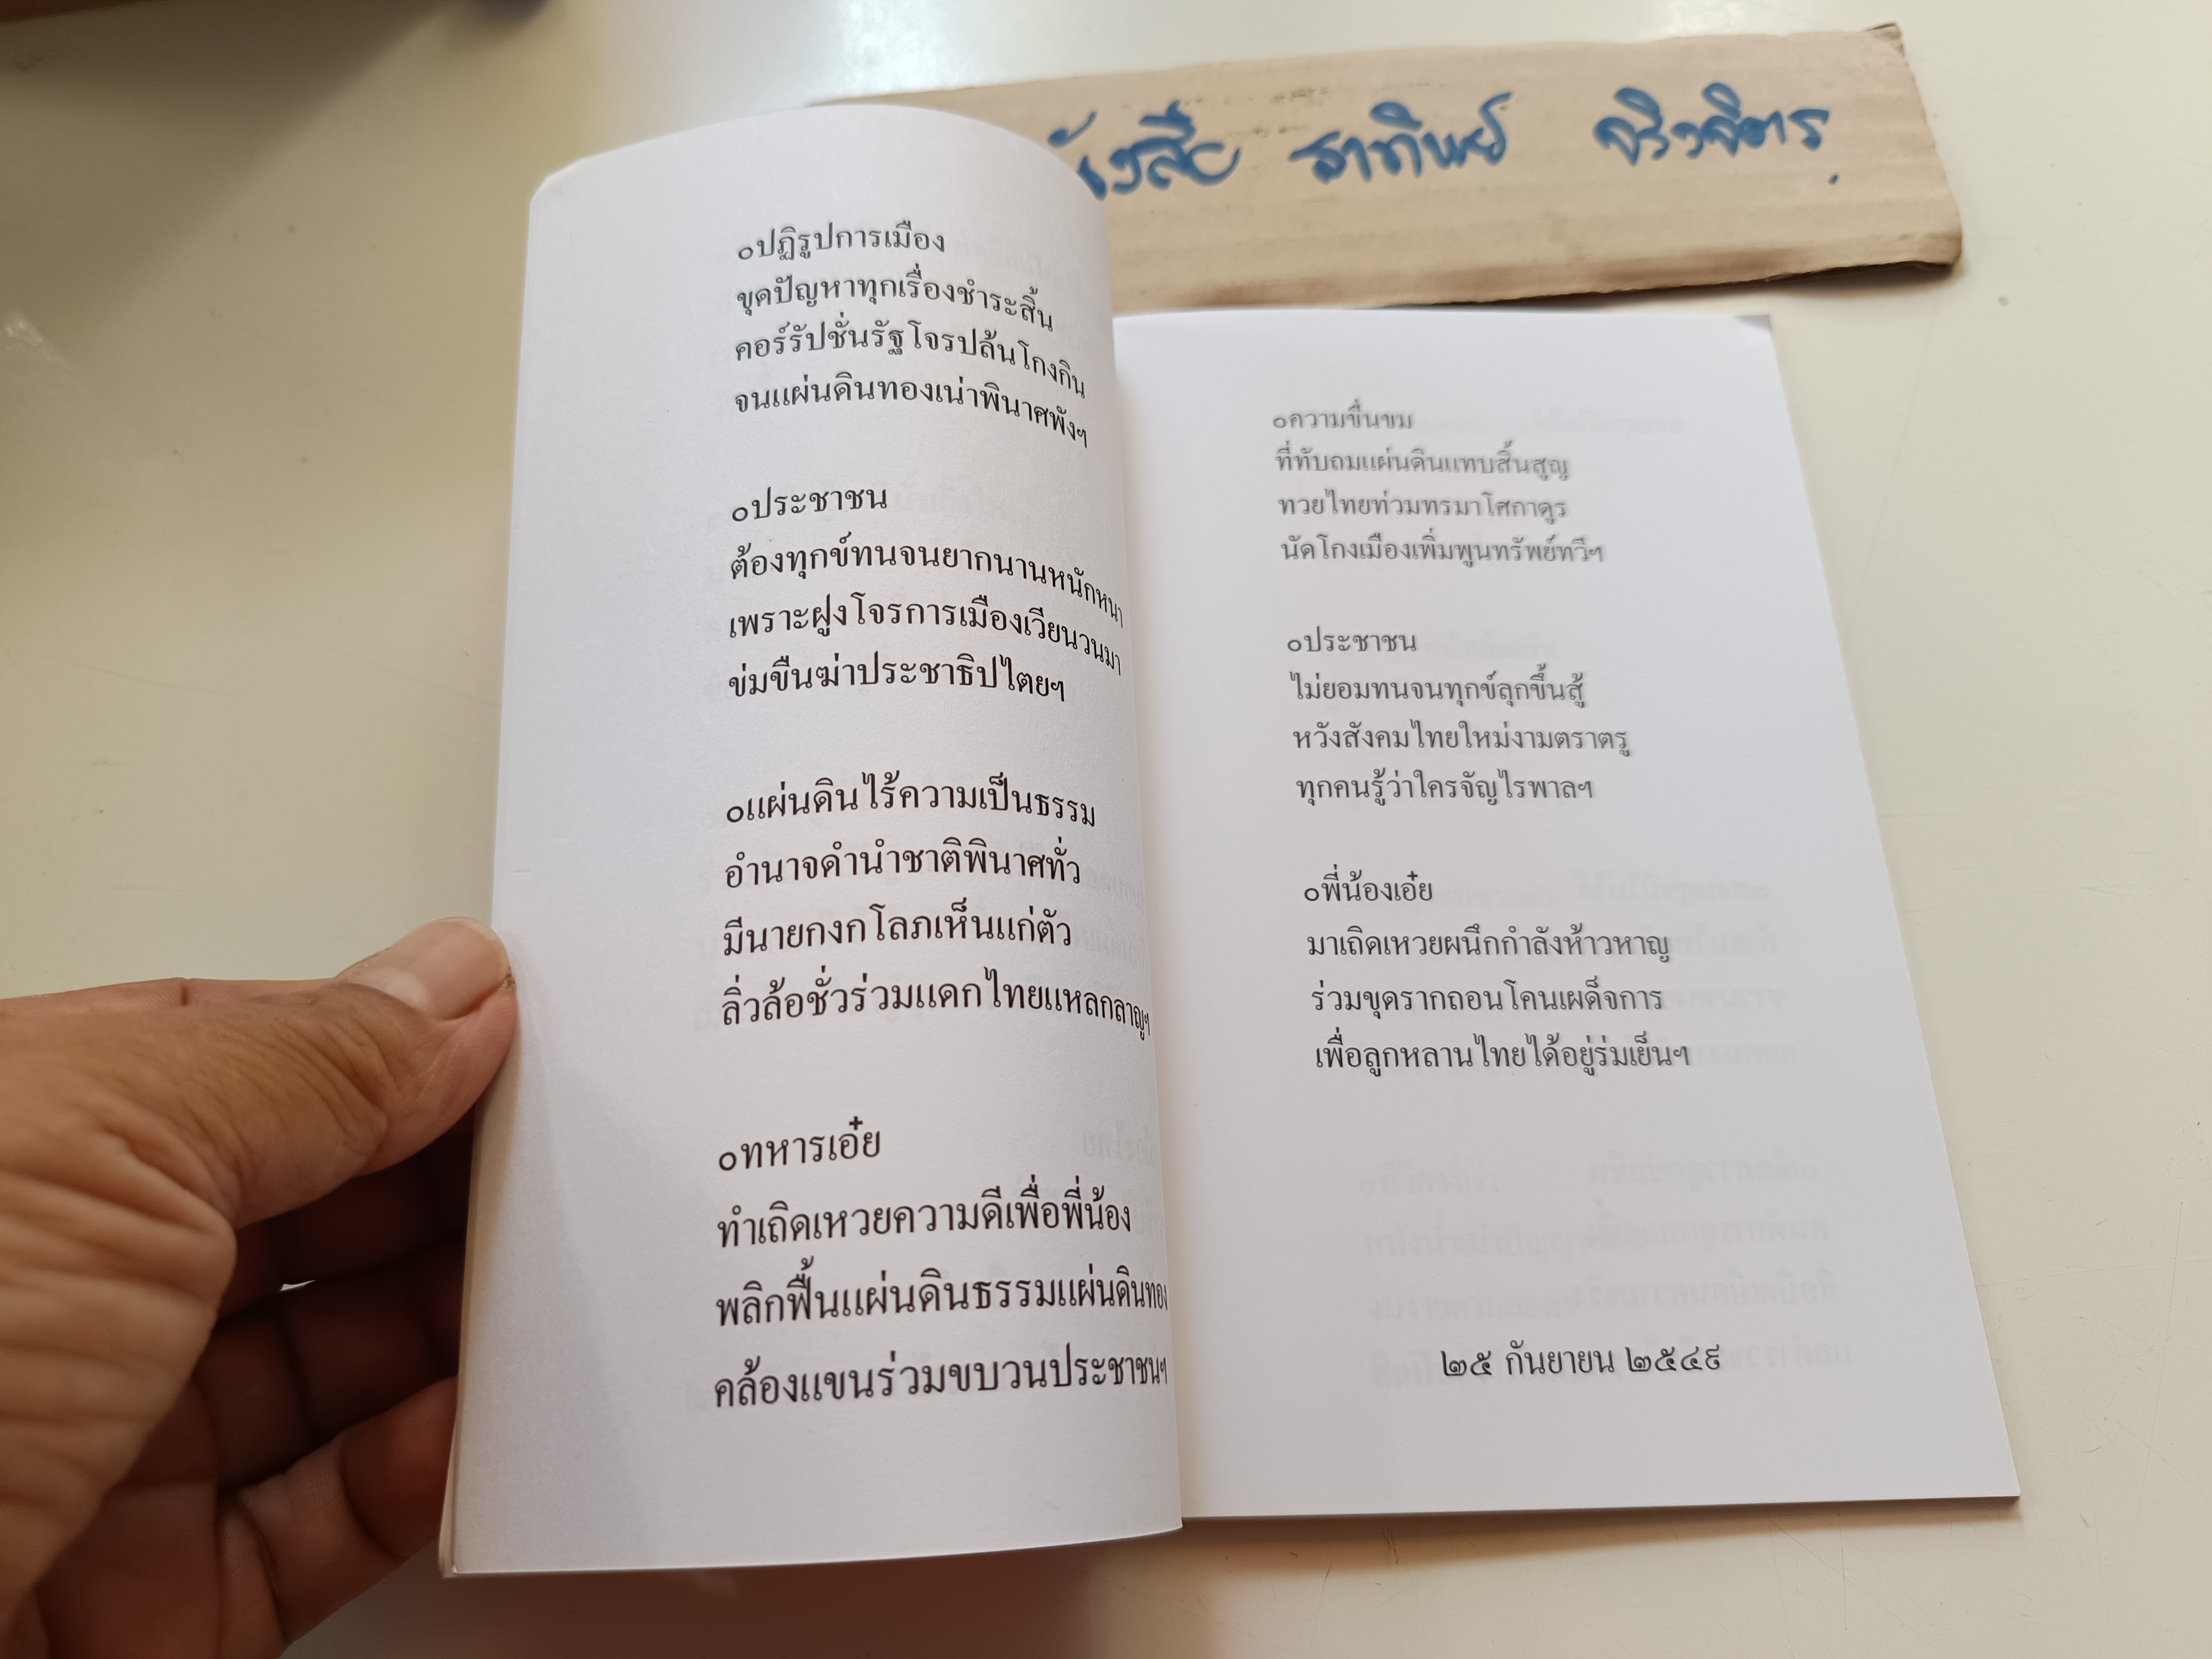 ๐ปฏิรูปการเมือง
ขุดปัญหาทุกเรื่องชำระสิ้น
คอร์รัปชั่นรัฐโจรปล้นโกงกิน
จนแผ่นดินทองเน่าพินาศพังฯ
๐ประชาชน
ต้องทุกข์ทนจนยากนานหนักหนา
เพราะฝูงโจรการเมืองเวียนวนมา
ข่มขืนฆ่าประชาธิปไตยฯ
๐แผ่นดินไร้ความเป็นธรรม
อำนาจดำนำชาติพินาศทั่ว
มีนายกงกโลภเห็นแก่ตัว
ลิ่วล้อชั่วร่วมแดกไทยแหลกลาญฯ
๐ทหารเอ๋ย
ทำเถิดเหวยความดีเพื่อพี่น้อง
พลิกฟื้นแผ่นดินธรรมแผ่นดินทอง
คล้องแขนร่วมขบวนประชาชนฯ
๐ความขื่นขม
ที่ทับถมแผ่นดินแทบสิ้นสูญ
ทวยไทยท่วมทรมาโศกาดูร
นัดโกงเมืองเพิ่มพูนทรัพย์ทวีฯ
๐ประชาชน
ไม่ยอมทนจนทุกข์ลุกขึ้นสู้
หวังสังคมไทยใหม่งามตราตรู
ทุกคนรู้ว่าใครจัญไรพาลฯ
๐พี่น้องเอ๋ย
มาเถิดเหวยผนึกกำลังห้าวหาญ
ร่วมขุดรากถอนโคนเผด็จการ
เพื่อลูกหลานไทยได้อยู่ร่มเย็นฯ
๒๕ กันยายน ๒๕๔๙